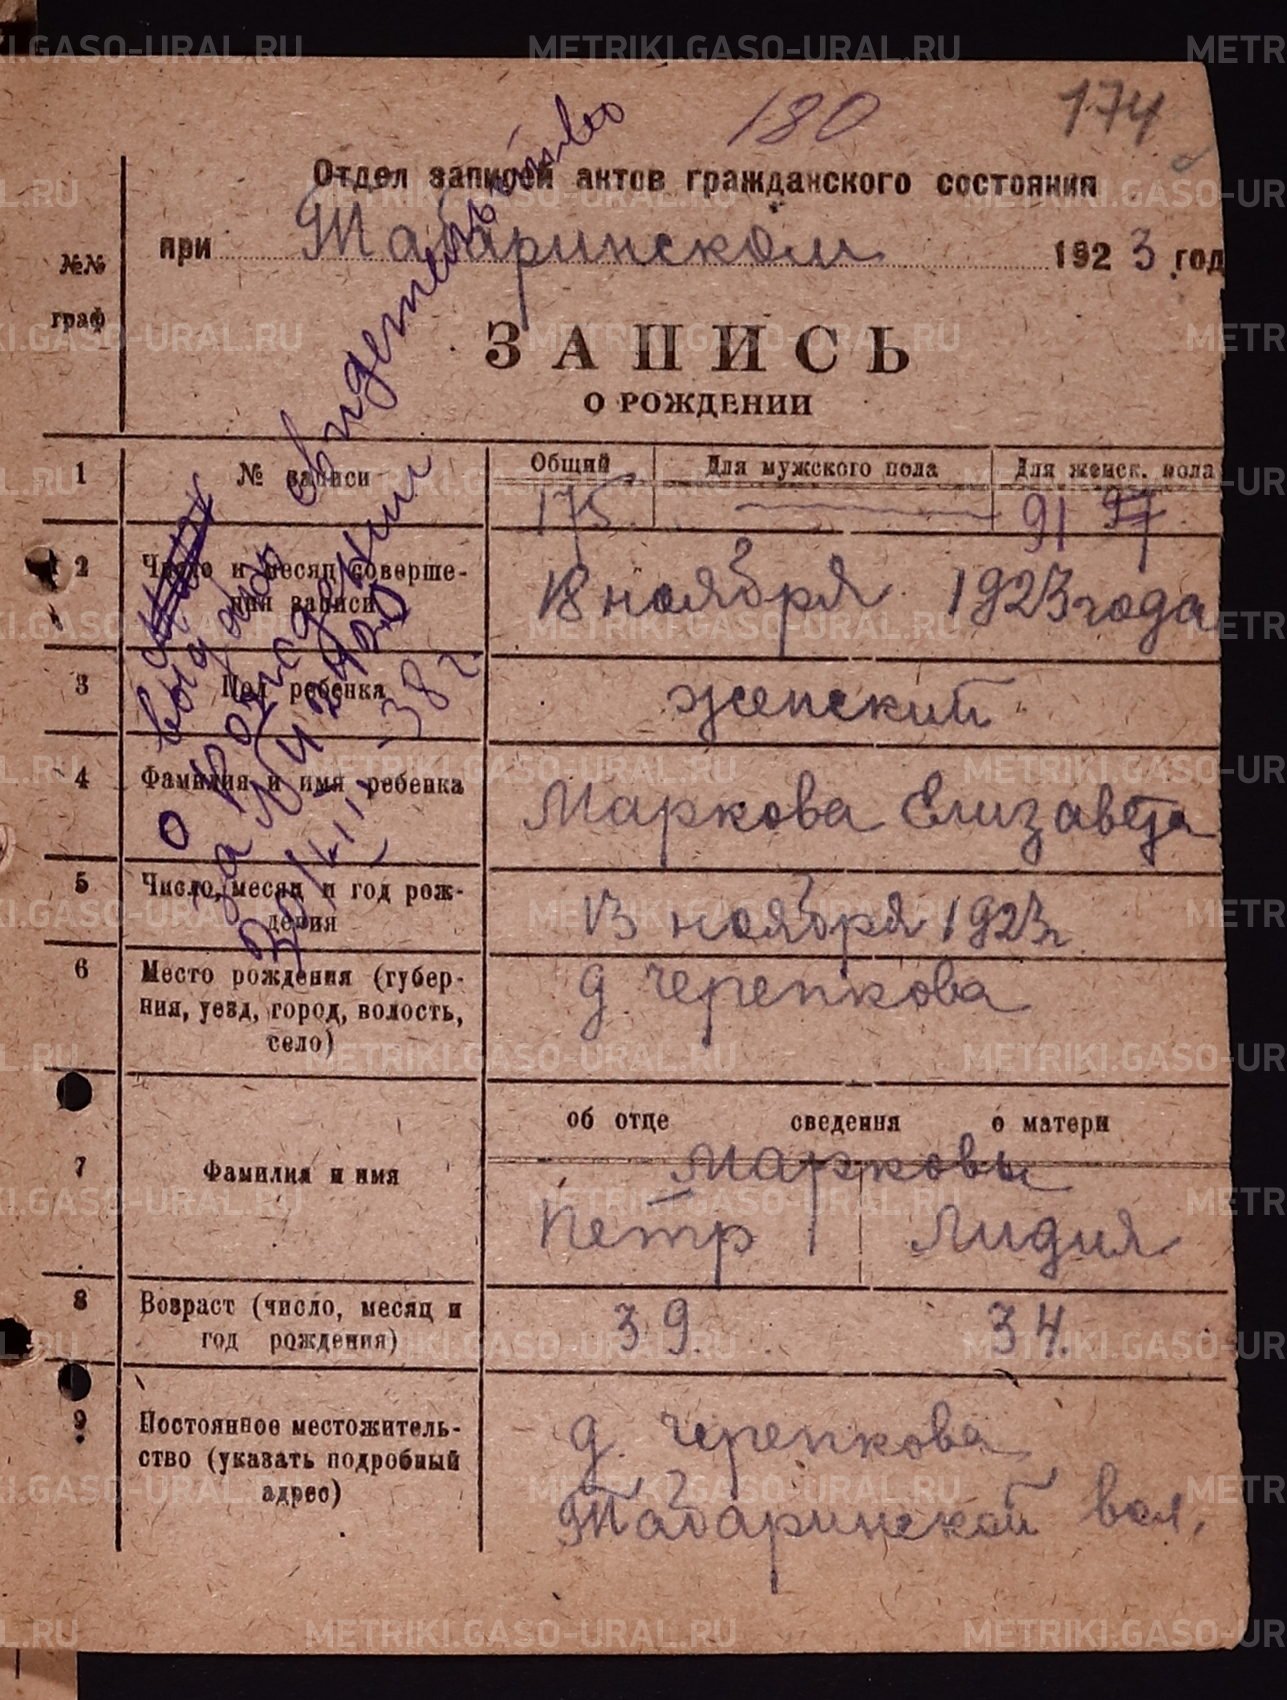 180
174
Отдел записей актов гражданского состояния
при Табаринском 1923 год
№№ граф
ЗАПИСЬ
О РОЖДЕНИИ
1 № записи
Общий Для мужского пола Для женск. пола
175 91 97
2 Число и месяц совершения записи 18 ноября 1923 года
3 Пол ребенка женский
4 Фамилия и имя ребенка Маркова Елизавета
5 Число, месяц и год рождения 13 ноября 1923 г.
6 Место рождения (губерния, уезд, город, волость, село) д. Черепкова
об отце сведения о матери
7 Фамилия и имя Марковы
Петр Лидия
8 Возраст (число, месяц и год рождения) 39. 34.
9 Постоянное местожительство (указать подробный адрес) д. Черепкова
Табаринской вол.
выдано свидетельство
о рождении
за №
38 г.
METRIKI.GASO-URAL.RU